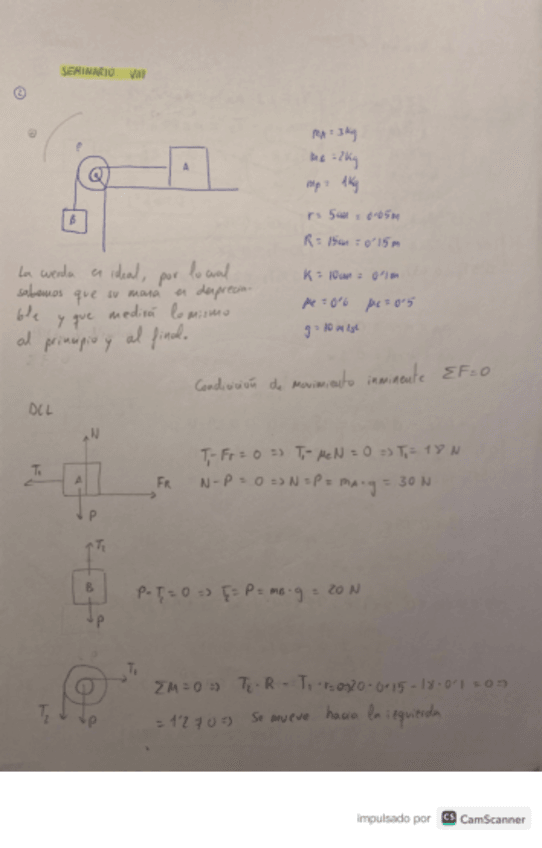 SEMINARIO VIII
P
A
B
mA = 3 kg
mB = 2 kg
mp = 1 kg
r = 5 cm = 0'05 m
R = 15 cm = 0'15 m
K = 10 cm = 0'1 m
μe = 0'6 μc = 0'5
g = 10 m/s²
La cuerda es ideal, por lo cual
sabemos que su masa es despreciable
y que medirá lo mismo
al principio y al final.
Condición de movimiento inminente ΣF = 0
DCL
N
T₁ A FR
P
T₁ - Fr = 0 => T₁ - μeN = 0 => T₁ = 18 N
N - P = 0 => N = P = mA · g = 30 N
T₂
B
P
P - T₂ = 0 => T₂ = P = mB · g = 20 N
T₁
T₂ P
ΣM = 0 => T₂ · R - T₁ · r = 0 => 20 · 0'15 - 18 · 0'1 = 0 =>
= 1'2 ≠ 0 => Se mueve hacia la izquierda
impulsado por CS CamScanner